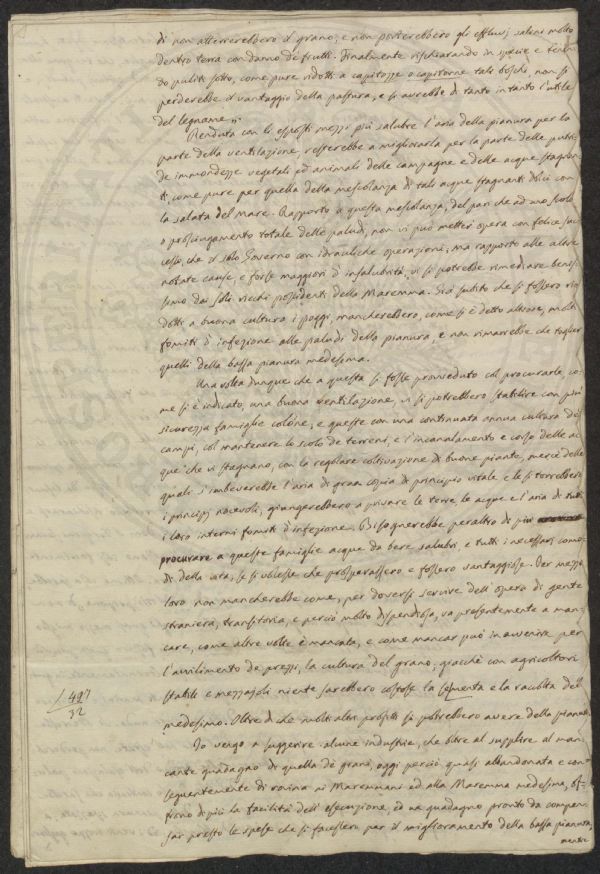 di non atterrerebbero il grano, e non porterebbero gli effluvj salini molto
dentro terra con danno de' frutti. Finalmente rischiarando in specie e tenen
do puliti sotto, come pure ridotti a capitozze o capitonne tali boschi, non si
perderebbe il vantaggio della pastura, e si avrebbe di tanto in tanto l'utile
del legname.
Renduta con li esposti mezzi più salubre l'aria della pianura per la
parte della ventilazione, resterebbe a migliorarla per la parte delle putri-
de immondezze vegetali ed animali delle campagne e delle acque stagnan
ti, come pure per quella della mescolanza di tali acque stagnanti dolci con
la salata del mare. Rapporto a questa mescolanza, del pari che ad uno scolo
o prosciugamento totale delle paludi, non vi può metter opera con felice suc
cesso, che il solo Governo con idrauliche operazioni; ma rapporto alle altre
notate cause, e forse maggiori d'insalubrità, vi si potrebbe rimediare benis
simo dai soli ricchi possidenti della Maremma. Già subito che si fossero ri
dotti a buona cultura i poggi, mancherebbero, come si è detto altrove, molti
fomiti d'infezione alle paludi della pianura, e non rimarrebbe che toglier
quelli della bassa pianura medesima.
Una volta dunque che a questa si fosse provveduto col procurarle, co
me si è indicato, una buona ventilazione, vi si potrebbero stabilire con più
sicurezza famiglie colone, e queste con una continuata annua cultura de'
campi, col mantenere lo scolo de' terreni, e l'incanalamento e corso delle ac
que che vi stagnano, con la regolare coltivazione di buone piante, mercè delle
quali s'imbeverebbe l'aria di gran copia di principio vitale e le si torrebbero
i principj nocevoli, giungerebbero a privare le terre, le acque e l'aria di tutti
i loro interni fomiti d'infezione. Bisognerebbe peraltro di più
procurare a queste famiglie acque da bere salubri, e tutti i necessarj como
di della vita, se si volesse che prosperassero e fossero vantaggiose. Per mezzo
loro non mancherebbe come, per doversi servire dell'opera di gente
straniera, transitoria, e perciò molto dispendiosa, va presentemente a man
care, come altre volte è mancata, e come mancar può in avvenire per
l'avvilimento de' prezzi, la cultura del grano; giacchè con agricoltori
stabili e mezzajoli niente sarebbero costose la sementa e la raccolta del
medesimo. Oltre di che molti altri profitti si potrebbero avere della pianura.
497
32
Io vengo a suggerire alcune industrie, che oltre al supplire al man
cante guadagno di quella de' grani, oggi perciò quasi abbandonata e con
seguentemente di rovina ai Maremmani ed alla Maremma medesima, of-
frono di più la facilità dell'esecuzione, ed un guadagno pronto da compen
sar presto le spese che si facessero per il miglioramento della bassa pianura,